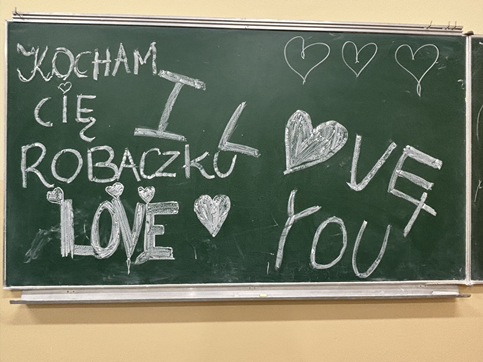 KOCHAM
CIĘ
ROBACZKU
iLOVE ♥
♡ ♡ ♡
I L♥VĘ
YOU